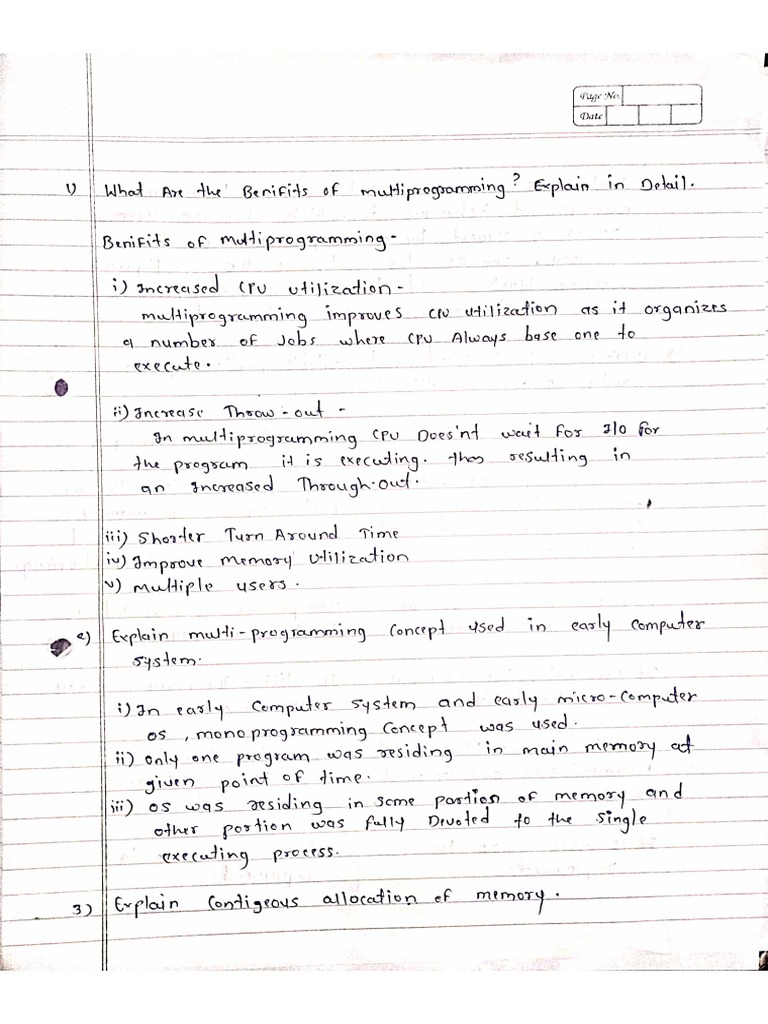 Page No.
Date
1) What Are the Benifits of multiprogramming? Explain in Detail.
Benifits of multiprogramming -
i) Increased CPU utilization -
multiprogramming improves CPU utilization as it organizes
a number of Jobs where CPU Always base one to
execute.
ii) Increase Throw-out -
In multiprogramming CPU Does'nt wait for I/O for
the program it is executing. thus resulting in
an Increased Through-out.
iii) Shorter Turn Around Time
iv) Improve memory utilization
v) multiple users.
2) Explain multi-programming Concept used in early Computer
system.
i) In early Computer System and early micro-Computer
os, monoprogramming Concept was used.
ii) only one program was residing in main memory at
given point of time.
iii) os was residing in some portion of memory and
other portion was fully Devoted to the single
executing process.
3) Explain Contigeous allocation of memory.